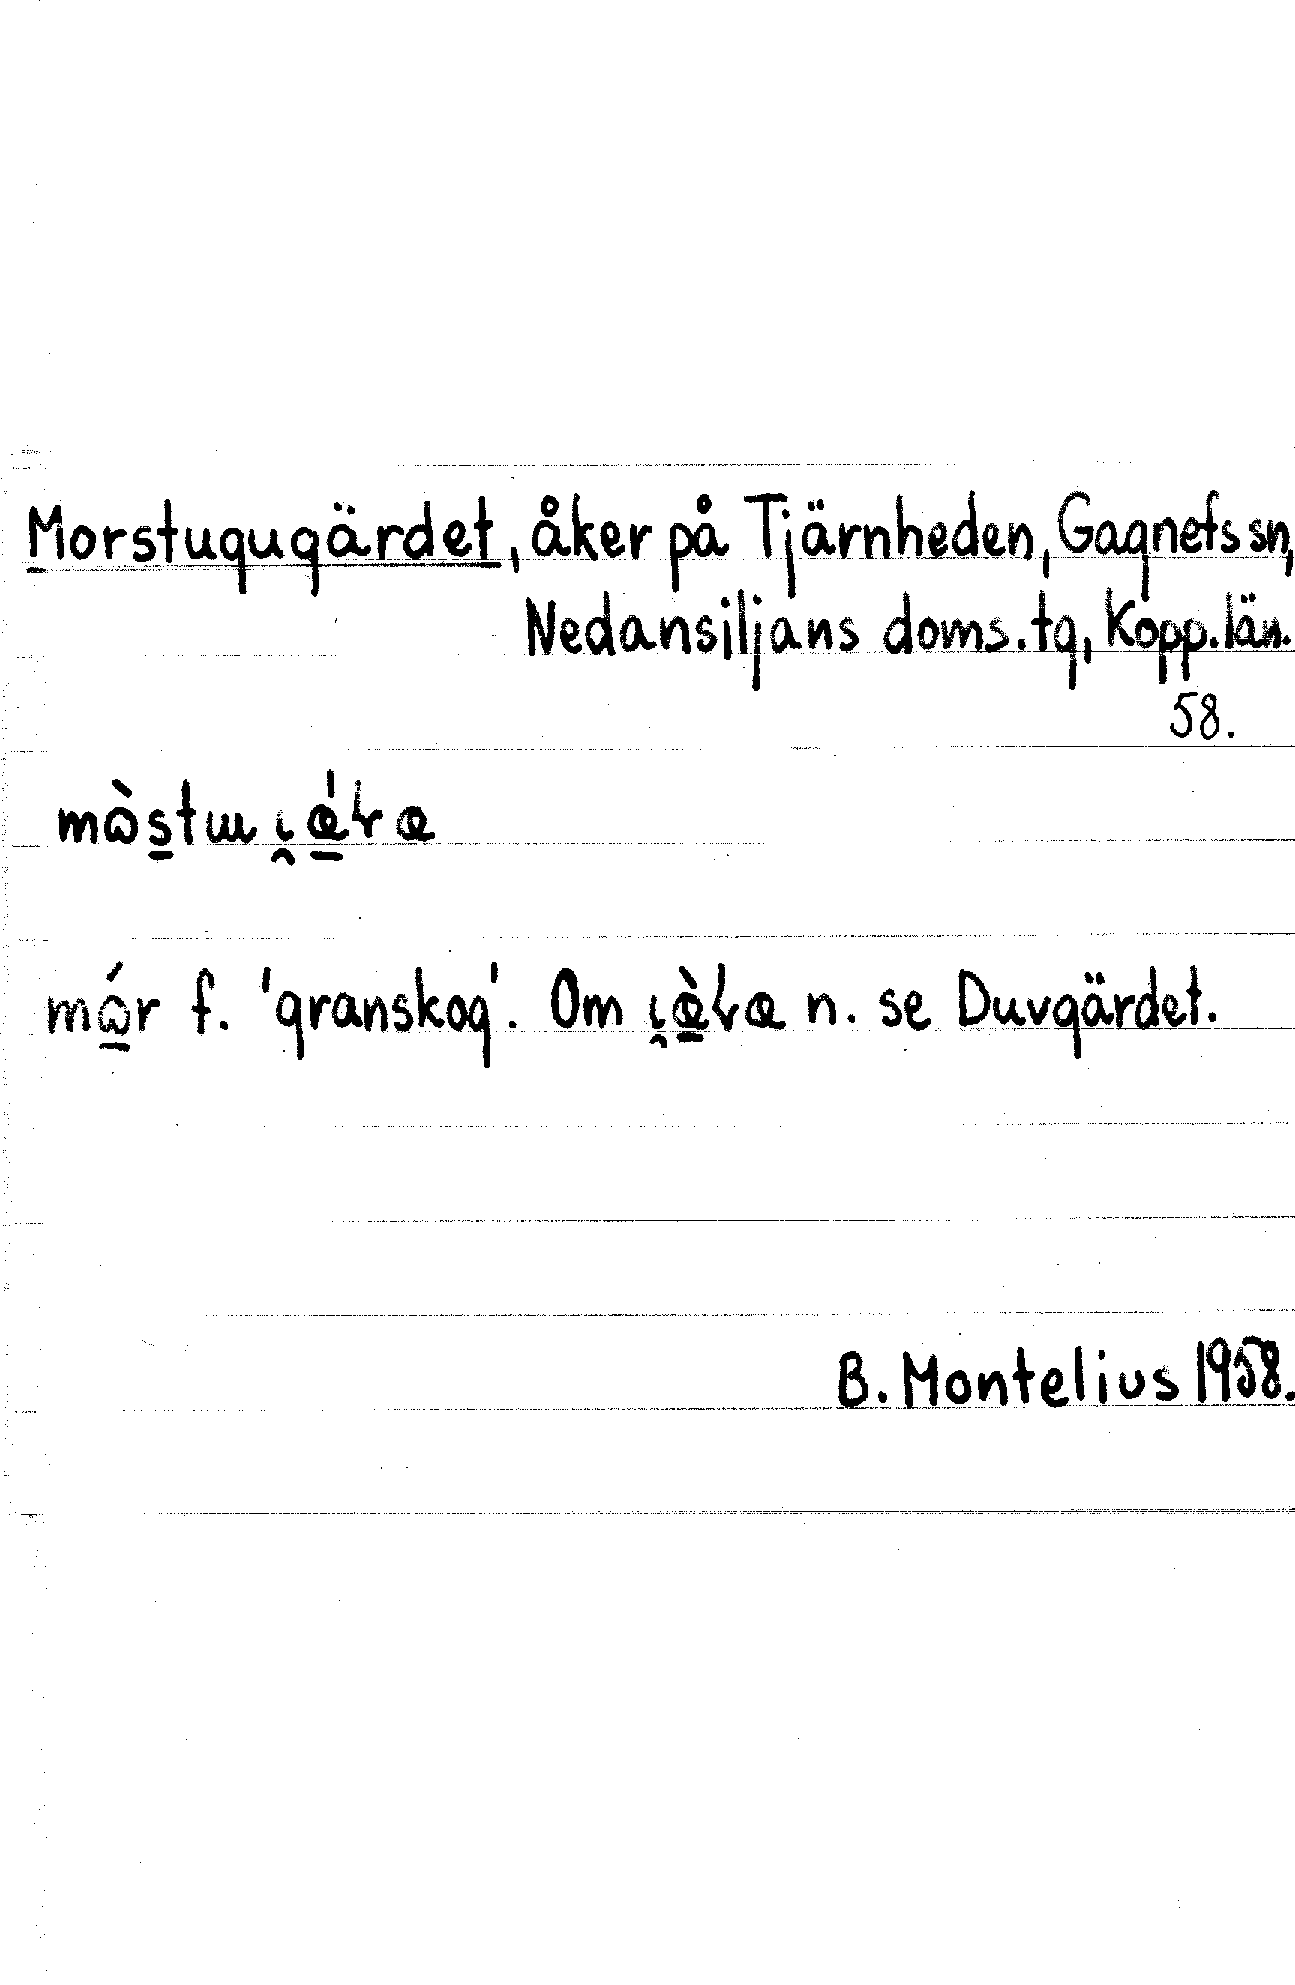 Morstugugärdet, åker på Tjärnheden, Gagnefs sn,
Nedansiljans doms.tg, Kopp. län.
58.
f. 'granskog'. Om n. se Duvgärdet.
B. Montelius 1958.